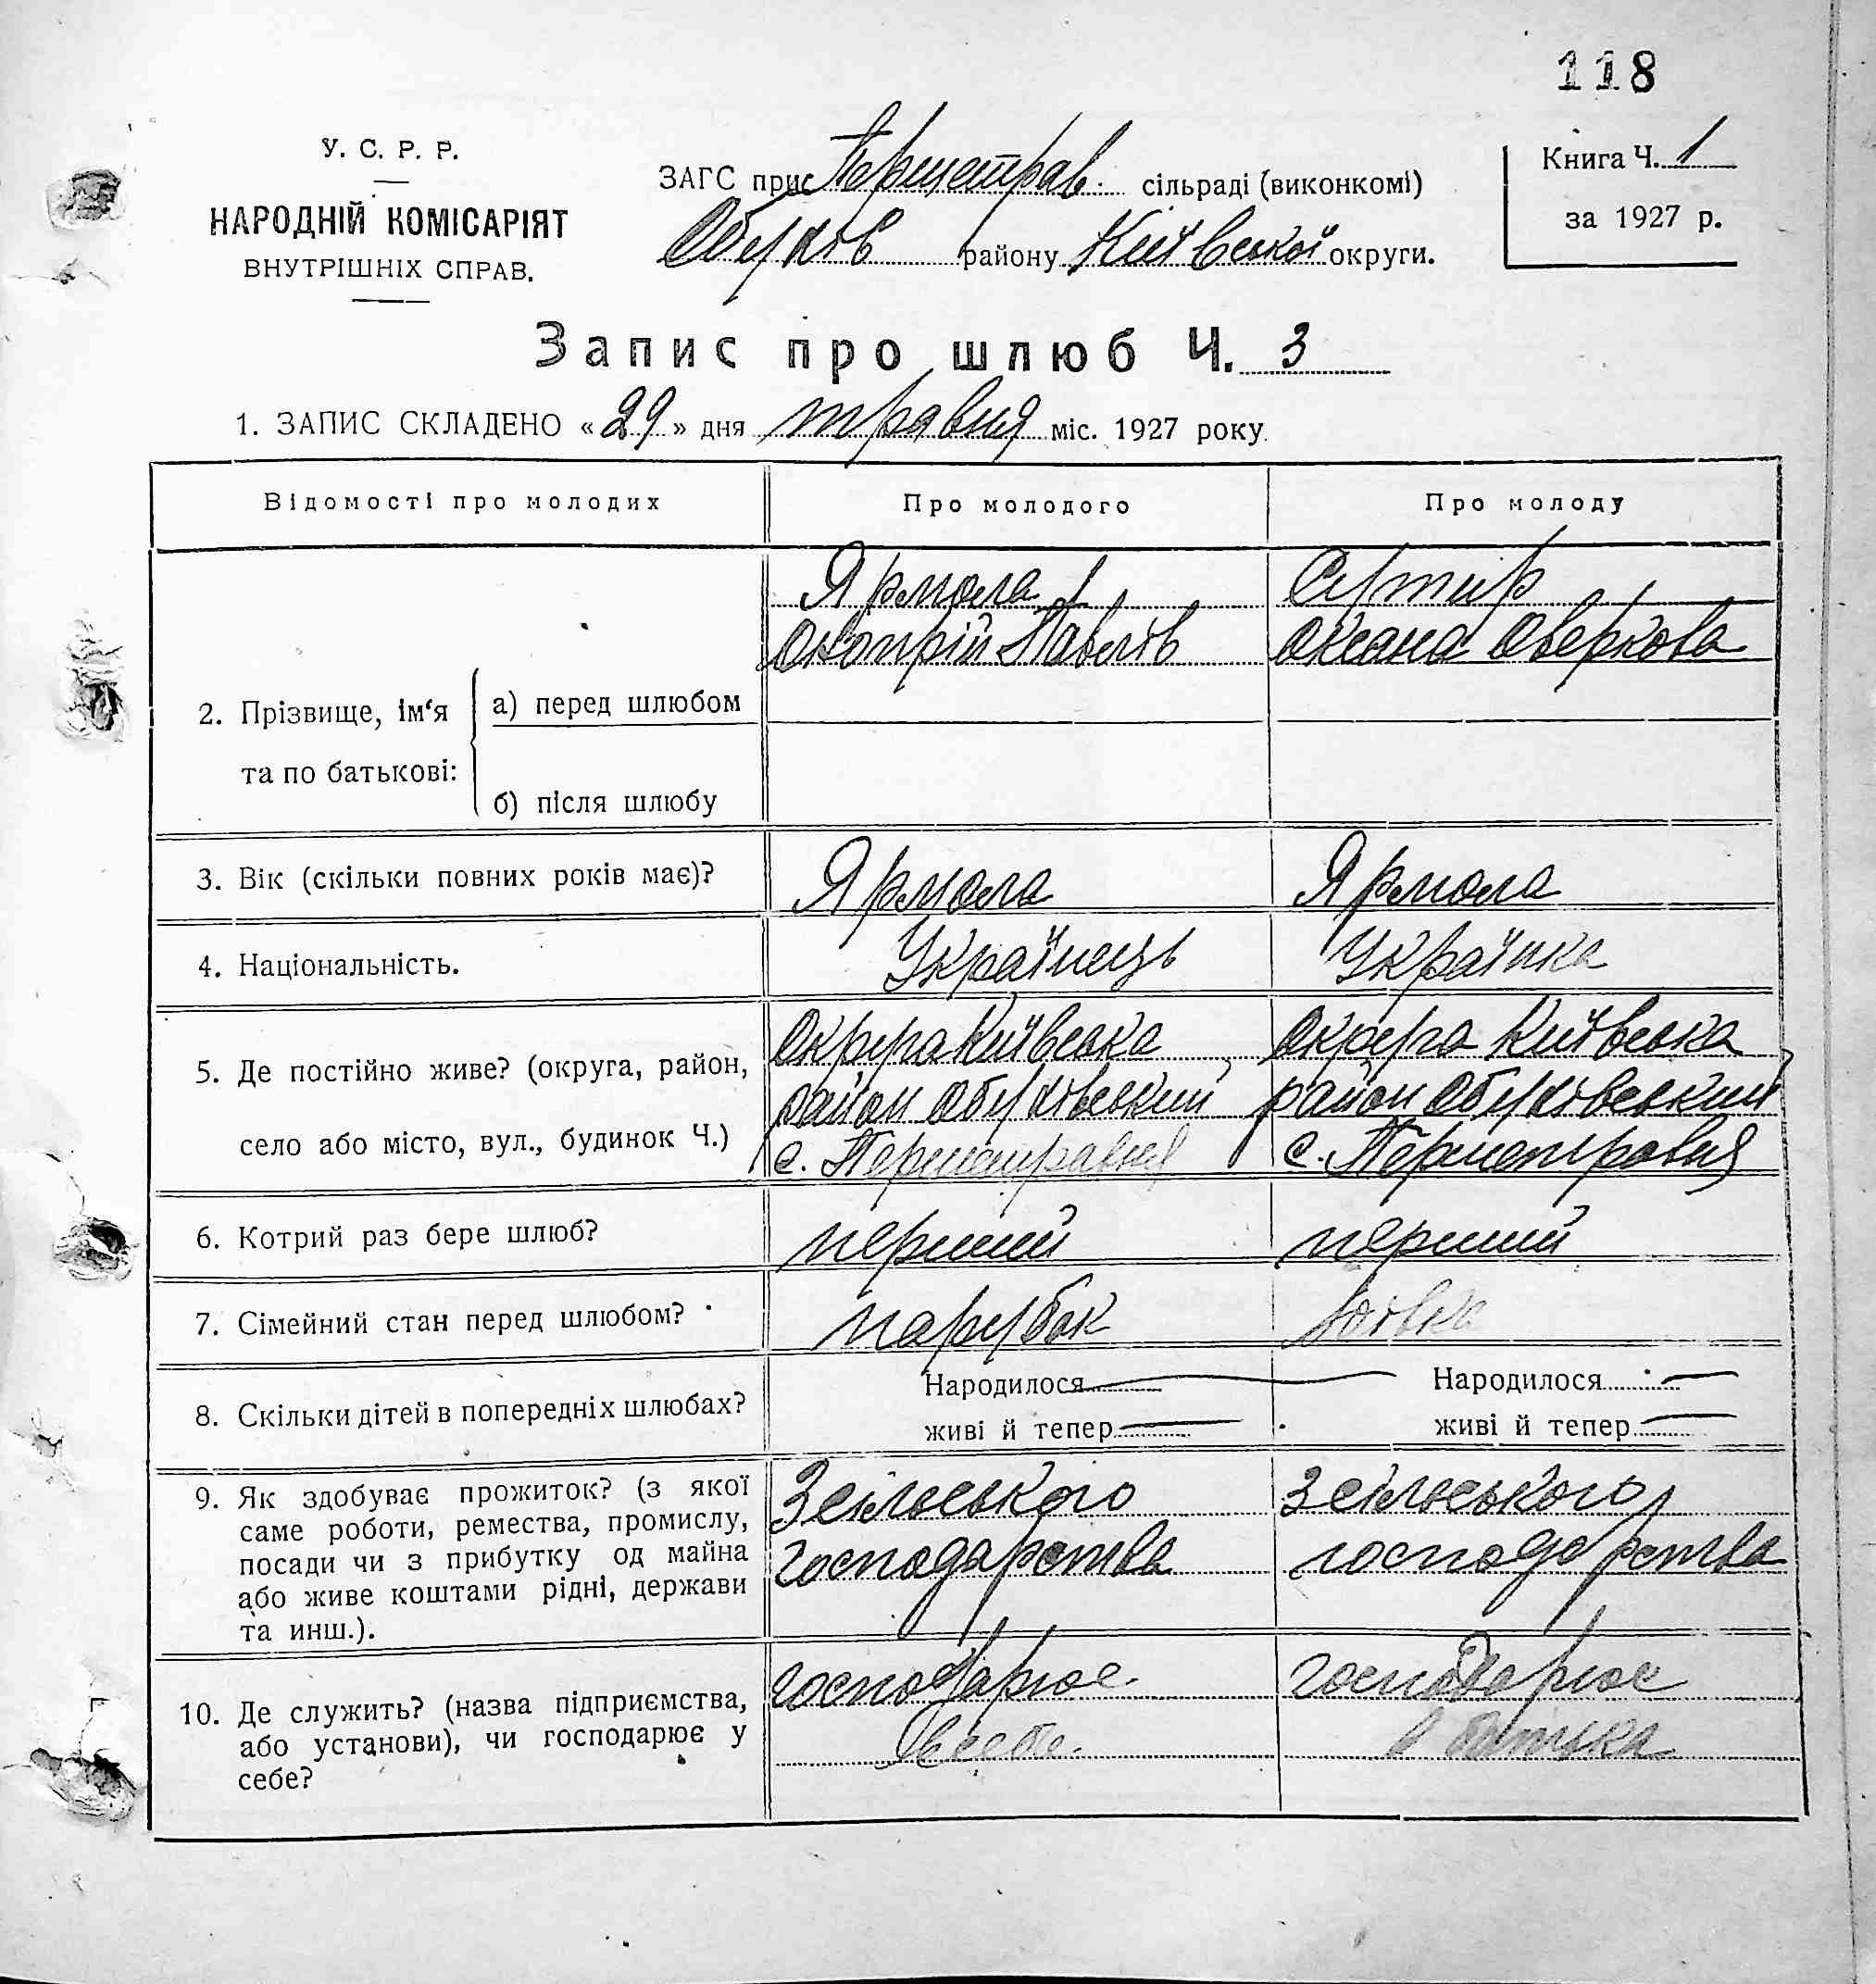 118
У. С. Р. Р.
НАРОДНІЙ КОМІСАРІЯТ
ВНУТРІШНІХ СПРАВ.
ЗАГС при с Першетрав. сільраді (виконкомі)
Обухів району Київської округи.
Книга Ч. 1
за 1927 р.
Запис про шлюб Ч. 3
1. ЗАПИС СКЛАДЕНО «29» дня травня міс. 1927 року
Відомості про молодих
Про молодого
Про молоду
2. Прізвище, ім‘я та по батькові:
а) перед шлюбом
б) після шлюбу
Ярмола
Павлів
Оксана Оверкова
3. Вік (скільки повних років має)?
Ярмола
Ярмола
4. Національність.
Українець
Українка
5. Де постійно живе? (округа, район,
село або місто, вул., будинок Ч.)
Округа Київська
район Обухівський
с. Першетравня
Округа Київська
район Обухівський
с. Першетравня
6. Котрий раз бере шлюб?
перший
перший
7. Сімейний стан перед шлюбом?
парубок
дівка
8. Скільки дітей в попередніх шлюбах?
Народилося —
живі й тепер —
Народилося —
живі й тепер —
9. Як здобуває прожиток? (з якої
саме роботи, ремества, промислу,
посади чи з прибутку од майна
або живе коштами рідні, держави
та инш.).
З сільського
господарства
З сільського
господарства
10. Де служить? (назва підприємства,
або установи), чи господарює у
себе?
господарює
в себе.
господарює
в батька